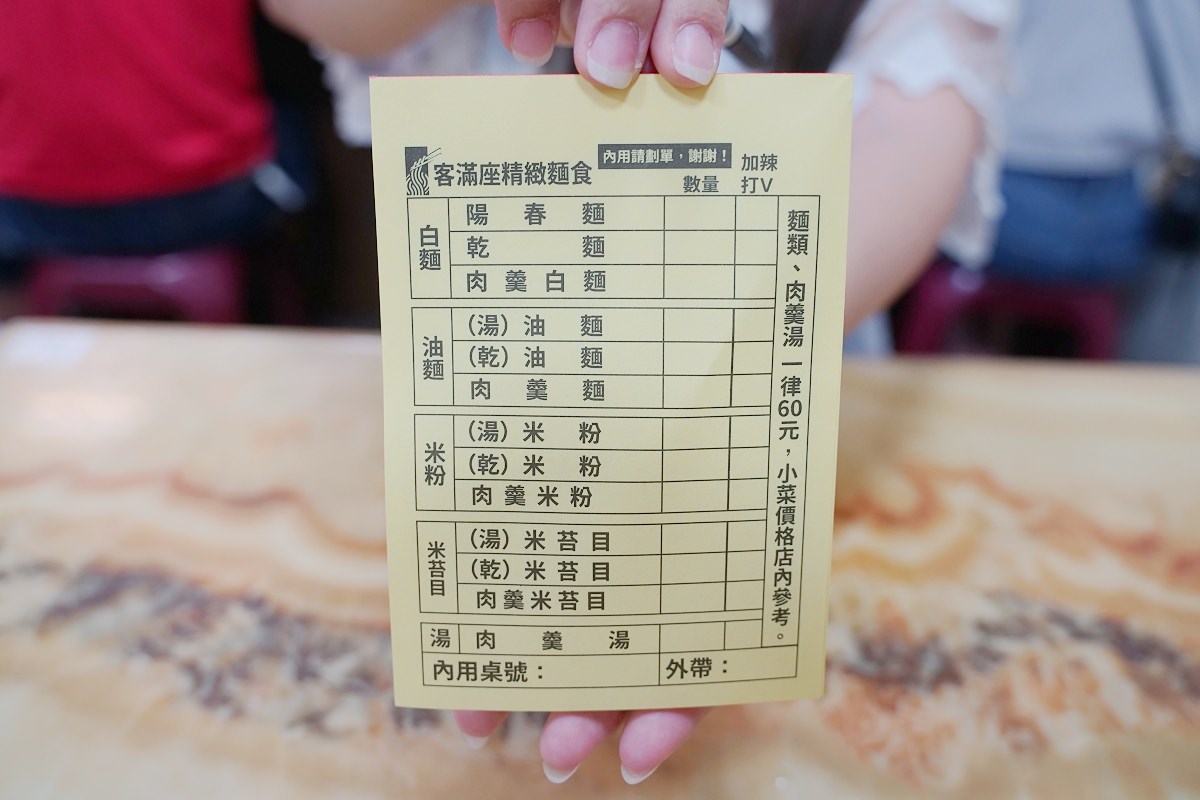 客滿座精緻麵食
內用請劃單，謝謝！
數量
加辣
打V
白麵
陽春麵
乾麵
肉羹白麵
油麵
（湯）油麵
（乾）油麵
肉羹麵
米粉
（湯）米粉
（乾）米粉
肉羹米粉
米苔目
（湯）米苔目
（乾）米苔目
肉羹米苔目
湯
肉羹湯
內用桌號：
外帶：
麵類、肉羹湯一律60元，小菜價格店內參考。